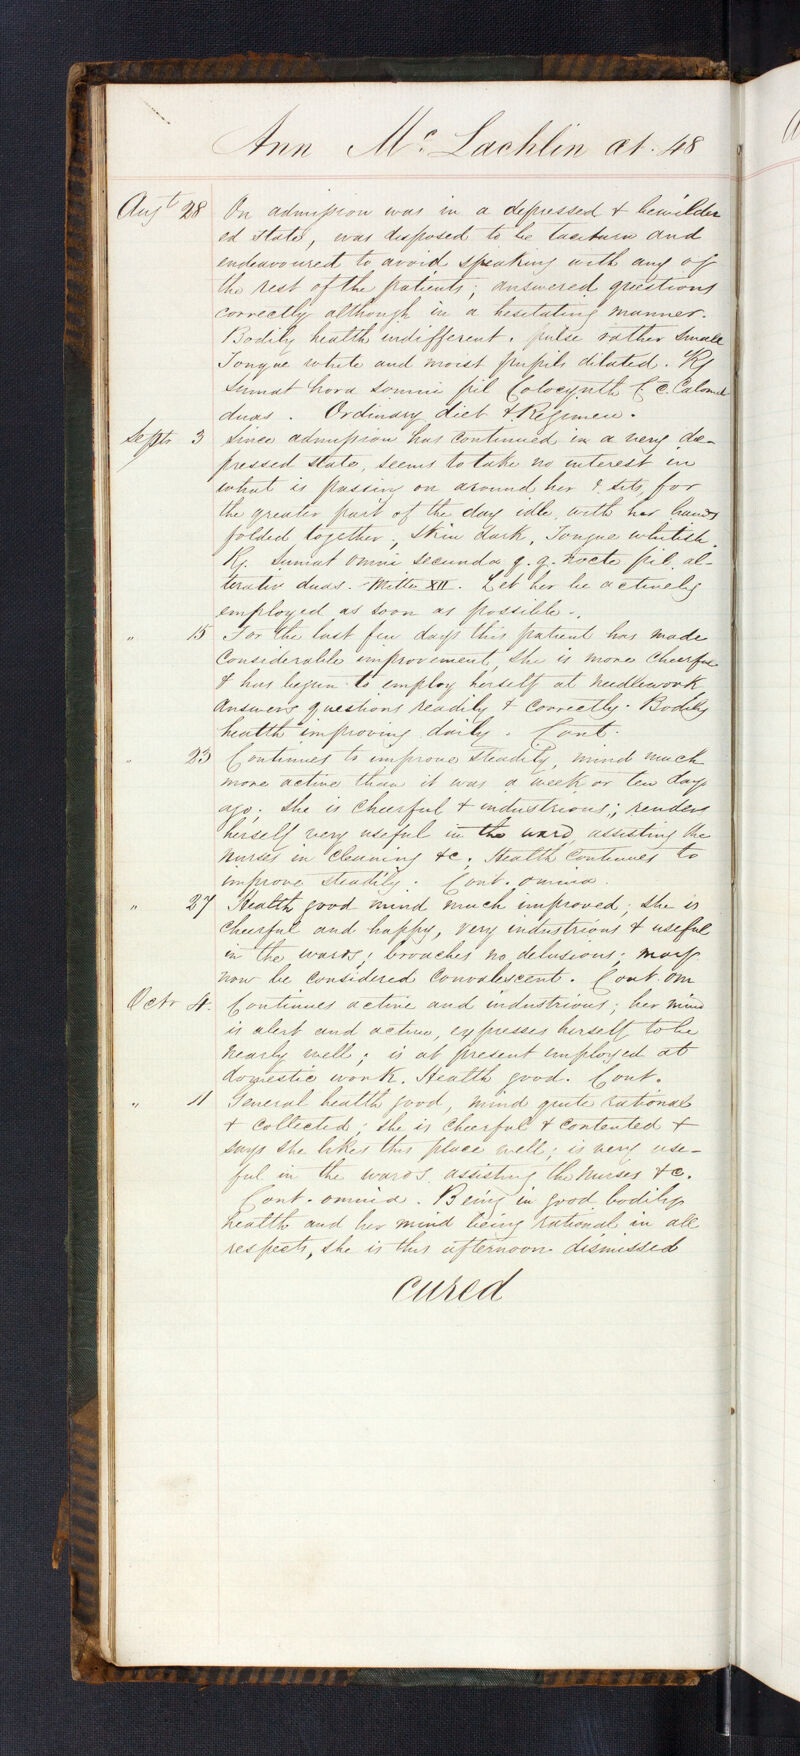 Ann McLachlin æt. 48
Augt 28 On admission was in a depressed & bewilder
ed state, was disposed to be taciturn and
endeavoured to avoid speaking with any of
the rest of the patients; answered questions
correctly although in a hesitating manner.
Bodily health indifferent. pulse rather small
Tongue white and moist pupils dilated. Rx
Sumat hora somni pil Colocynth C c. Calomel
duas. Ordinary diet & Regimen.
Septr 3 Since admission has continued in a very de-
pressed state, seems to take no interest in
what is passing on around her & sits, for
the greater part of the day idle with her hands
folded together, Skin dark, Tongue whitish.
Rx. Sumat omni secunda q. q. nocte pil. al-
terativ duas. Mitte XII. Let her be actively
employed as soon as possible.
" 15 For the last few days this patient has made
considerable improvement, she is more cheerful
& has begun to employ herself at needlework
Answers questions readily & correctly. Bodily
health improving daily. Cont.
" 23 Continues to improve steadily, mind much
more active than it was a week or ten days
ago; she is cheerful & industrious; renders
herself very useful in the ward, assisting the
nurses in cleaning &c. Health continues to
improve steadily. Cont. omnia.
" 27 Health good mind much improved; she is
cheerful and happy, very industrious & useful
in the wards; broaches no delusions; may
now be considered convalescent. Cont. om
Octr 4. Continues active and industrious; her mind
is alert and active, expresses herself to be
nearly well; is at present employed at
domestic work. Health good. Cont.
" 11 General health good, mind quite rational
& collected; she is cheerful & contented &
says she likes this place well; is very use-
ful in the wards assisting the nurses &c.
Cont. omnia. Being in good bodily
health and her mind being rational in all
respects, she is this afternoon dismissed
cured